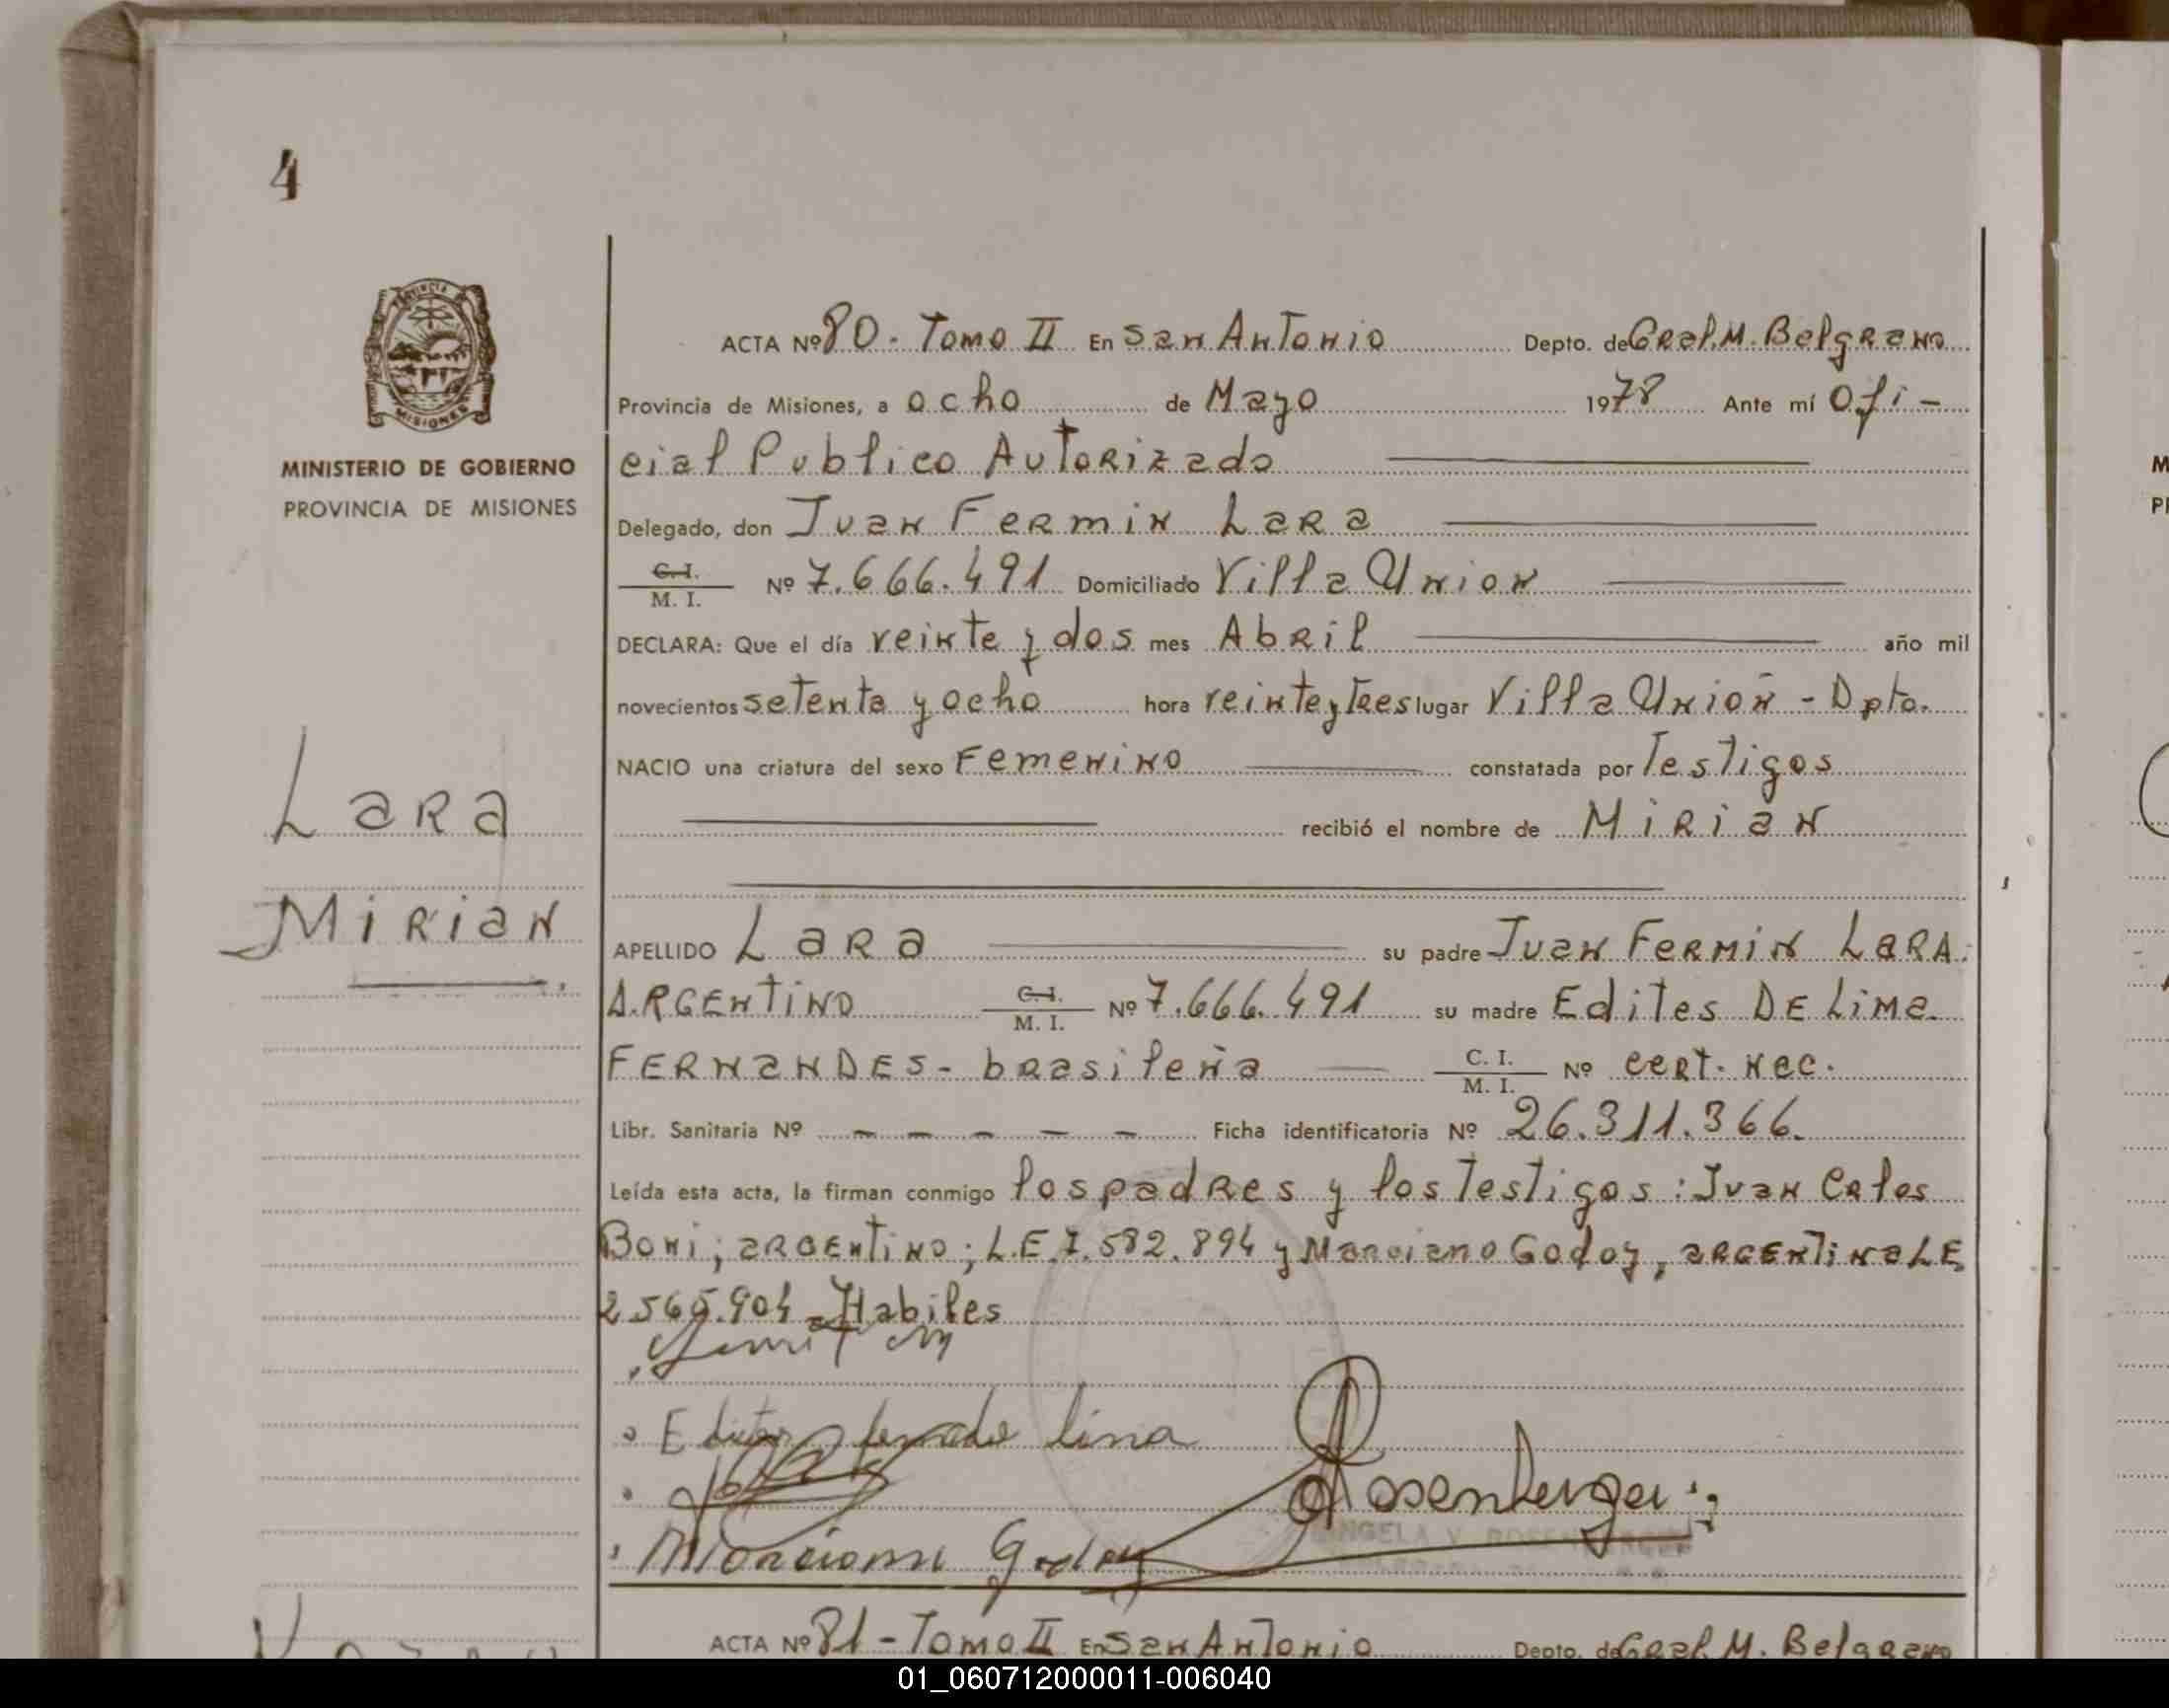 4
PROVINCIA
MISIONES
MINISTERIO DE GOBIERNO
PROVINCIA DE MISIONES
Lara
Mirian
ACTA Nº 80 - Tomo II En San Antonio Depto. de Gral. M. Belgrano
Provincia de Misiones, a ocho de Mayo 1978 Ante mí Ofi-
cial Publico Autorizado
Delegado, don Juan Fermin Lara
C.I. / M. I. Nº 7.666.491 Domiciliado Villa Union
DECLARA: Que el día veinte y dos mes Abril año mil
novecientos setenta y ocho hora veinte y tres lugar Villa Unión - Dpto.
NACIO una criatura del sexo Femenino constatada por Testigos
recibió el nombre de Mirian
APELLIDO Lara su padre Juan Fermin LARA.
ARGENTINO C.I. / M. I. Nº 7.666.491 su madre Edites DE Lima
FERNANDES - brasileña C. I. / M. I. Nº cert. nac.
Libr. Sanitaria Nº - - - - - Ficha identificatoria Nº 26.311.366.
Leída esta acta, la firman conmigo los padres y los Testigos: Juan Calos
Boni; argentino; L.E 7.582.894 y Marciano Godoy, argentina LE
2565.904 Habiles
lima
Rosenberger
Marciano Godoy
ANGELA V. ROSENBERGER
ACTA Nº 81 - Tomo II En San Antonio Depto. de Gral. M. Belgrano
01_060712000011-006040